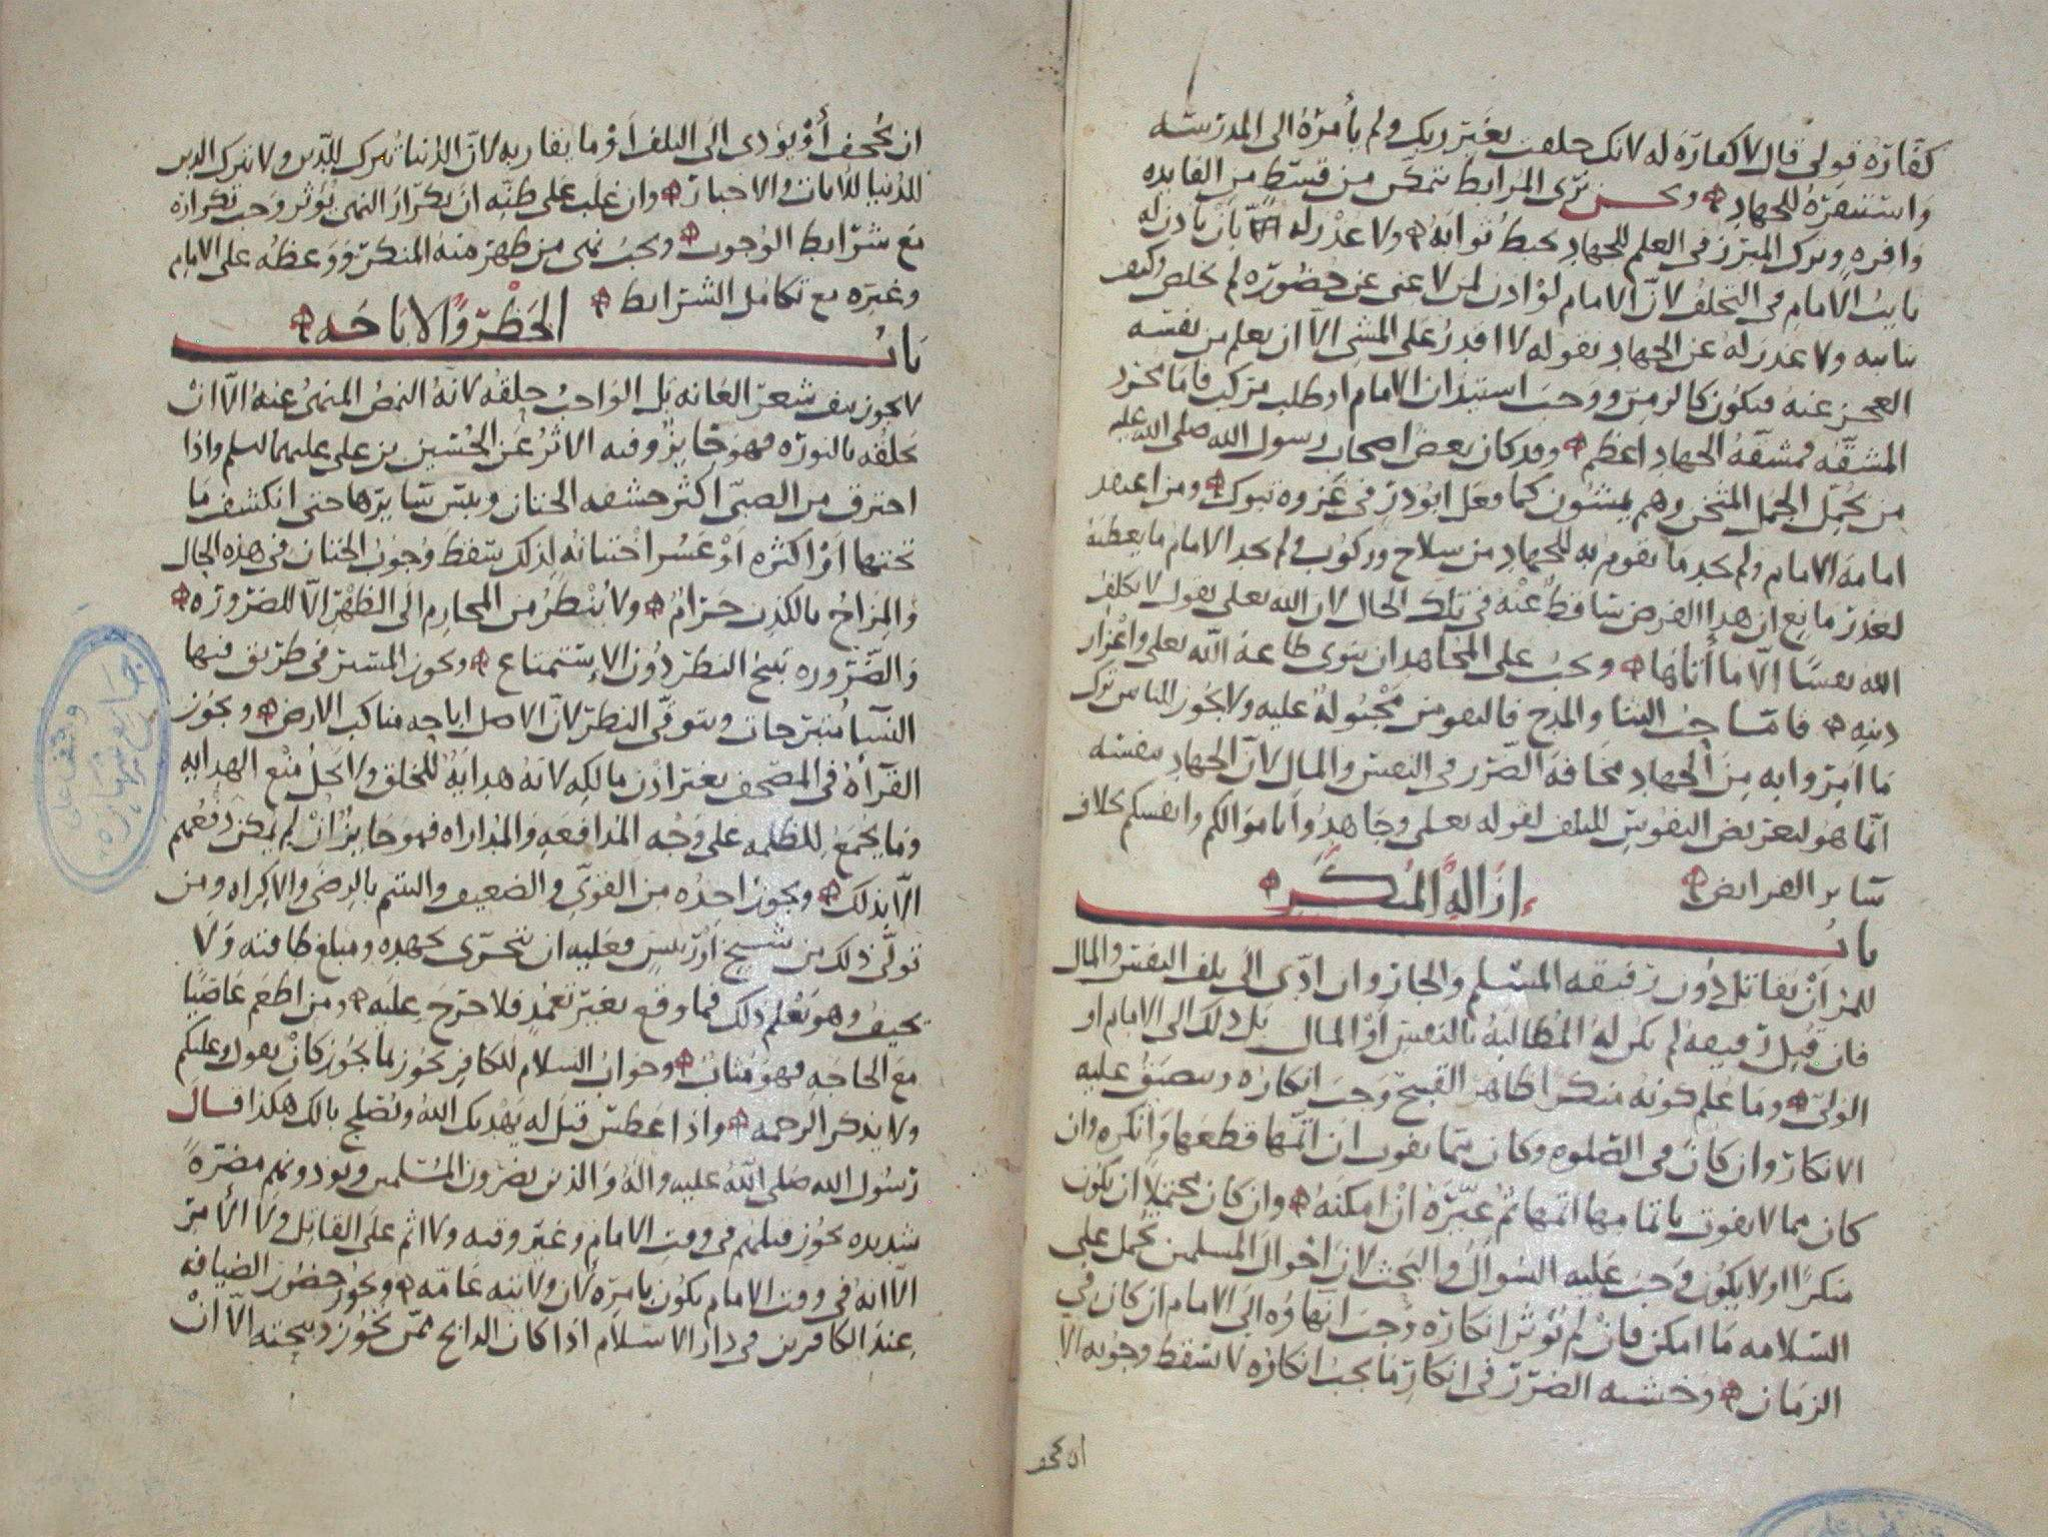 كفارة قولي قال لا كفارة له لانك حلفت بغير ربك ولم يأمره الى المدرسه
واستنفره للجهاد ونحن نرى المرابط يتمكن من قسط من الفايده
وافره وترك المبرز في العلم للجهاد يحبط ثوابه ولا عذر له بان ياذن له
نايب الامام في التخلف لان الامام لو اذن لمن لا غنى عن حضوره لم يخلص وكيف
نايبه ولا عذر له عن الجهاد بقوله لا اقدر على المشي الا ان يعلم من نفسه
العجز عنه فيكون كالزمن ووجب استيذان الامام او طلب مركب فاما مجرد
المشقه فمشقة الجهاد اعظم وقد كان بعض اصحاب رسول الله صلى الله عليه
من يحمل الحمل المثخن وهم يمشون كما فعل ابو ذر في غزوة تبوك ومن اعتقد
امامة الامام ولم يجد ما يقوم به للجهاد من سلاح وركوب ولم يجد الامام ما يعطيه
لعذر مانع ان هذا الفرض ساقط عنه في تلك الحال لان الله تعلى يقول لا يكلف
الله نفسا الا ما اتاها ويجب على المجاهد ان ينوي طاعة الله تعلى واعزاز
دينه فاما حب الثنا والمدح فالنفوس مجبولة عليه ولا يجوز للناس ترك
ما امروا به من الجهاد مخافة الضرر في النفس والمال لان الجهاد نفسه
انما هو لتعريض النفوس للتلف لقوله تعلى وجاهدوا باموالكم وانفسكم بخلاف
ساير الفرايض
باب ازالة المنكر
للمرء ان يقاتل دون رفيقه المسلم والجار وان ادى الى تلف النفس والمال
فان قتل رفيقه لم يكن له المطالبة بالنفس او المال بل ذلك الى الامام او
الولي وما علم كونه منكرا ظاهر القبح وجب انكاره ويضيق عليه
الانكار وان كان في الصلوة وكان مما يفوت ان اتمها قطعها وانكره وان
كان مما لا يفوت باتمامها اتمها ثم غيره ان امكنه وان كان محتملا ان يكون
منكرا او لا يكون وجب عليه السوال والبحث لان احوال المسلمين تحمل على
السلامه ما امكن فان لم يؤثر انكاره وجب انهاؤه الى الامام ان كان في
الزمان وخشيه الضرر في انكار ما يجب انكاره لا يسقط وجوبه الا
ان يجحف
ان يجحف أو يؤدي الى التلف أو ما يقاربه لان الدنيا تترك للدين ولا يترك الدين
للدنيا للايات والاخبار وان غلب على ظنه ان تكرار النهي يؤثر وجب تكراره
مع شرايط الوجوب ويجب نهي من ظهر منه المنكر ووعظه على الامام
وغيره مع تكامل الشرايط
باب الحظر والاباحه
لا يجوز نتف شعر العانه بل الواجب حلقه لانه النمص المنهى عنه الا ان
يحلقه بالنوره فهو جايز وفيه الاثر عن الحسين بن علي عليهما السلم واذا
احترق من الصبي اكثر حشفه الختان ويبس سايرها حتى انكشف ما
تحتها او اكثره او عسر اختتانه لذلك سقط وجوب الختان في هذه الحال
والمزاح بالكذب حرام ولا ينظر من المحارم الى الظهر الا للضروره
والضروره تبيح النظر دون الاستمتاع ويجوز المشي في طريق فيها
النسا متبرجات ويتوقى النظر لان الاصل اباحه مناكب الارض ويجوز
القرأة في المصحف بغير اذن مالكه لانه هداية للخلق ولا يحل منع الهدايه
وما يجمع للظلمه على وجه المدافعه والمداراه فهو جايز ان لم يمكن دفعهم
الا بذلك ويجوز اخذه من القوي والضعيف واليتيم بالرضى والاكراه ومن
تولى ذلك من شيخ او رئيس فعليه ان يتحرى بجهده ومبلغ طاقته ولا
يحيف وهو يعلم ذلك فما وقع بغير تعمد فلا حرج عليه ومن اطعم عاصيا
مع الحاجه فهو مثاب وجواب السلام للكافر يجوز لما يجوز كان يقول وعليكم
ولا يذكر الرحمه واذا عطس قيل له يهديك الله ويصلح بالك هكذا قال
رسول الله صلى الله عليه واله والذين يضرون المسلمين ويوذونهم مضرة
شديده يجوز قتلهم في وقت الامام وغير وقته ولا اثم على القاتل ولا الأمر
الا انه في وقت الامام يكون بامره لان ولايته عامه ويجوز حضور الضيافه
عند الكافرين في دار الاسلام اذا كان الذابح ممن تجوز ذبيحته الا ان
وقف على
جامع شهاره